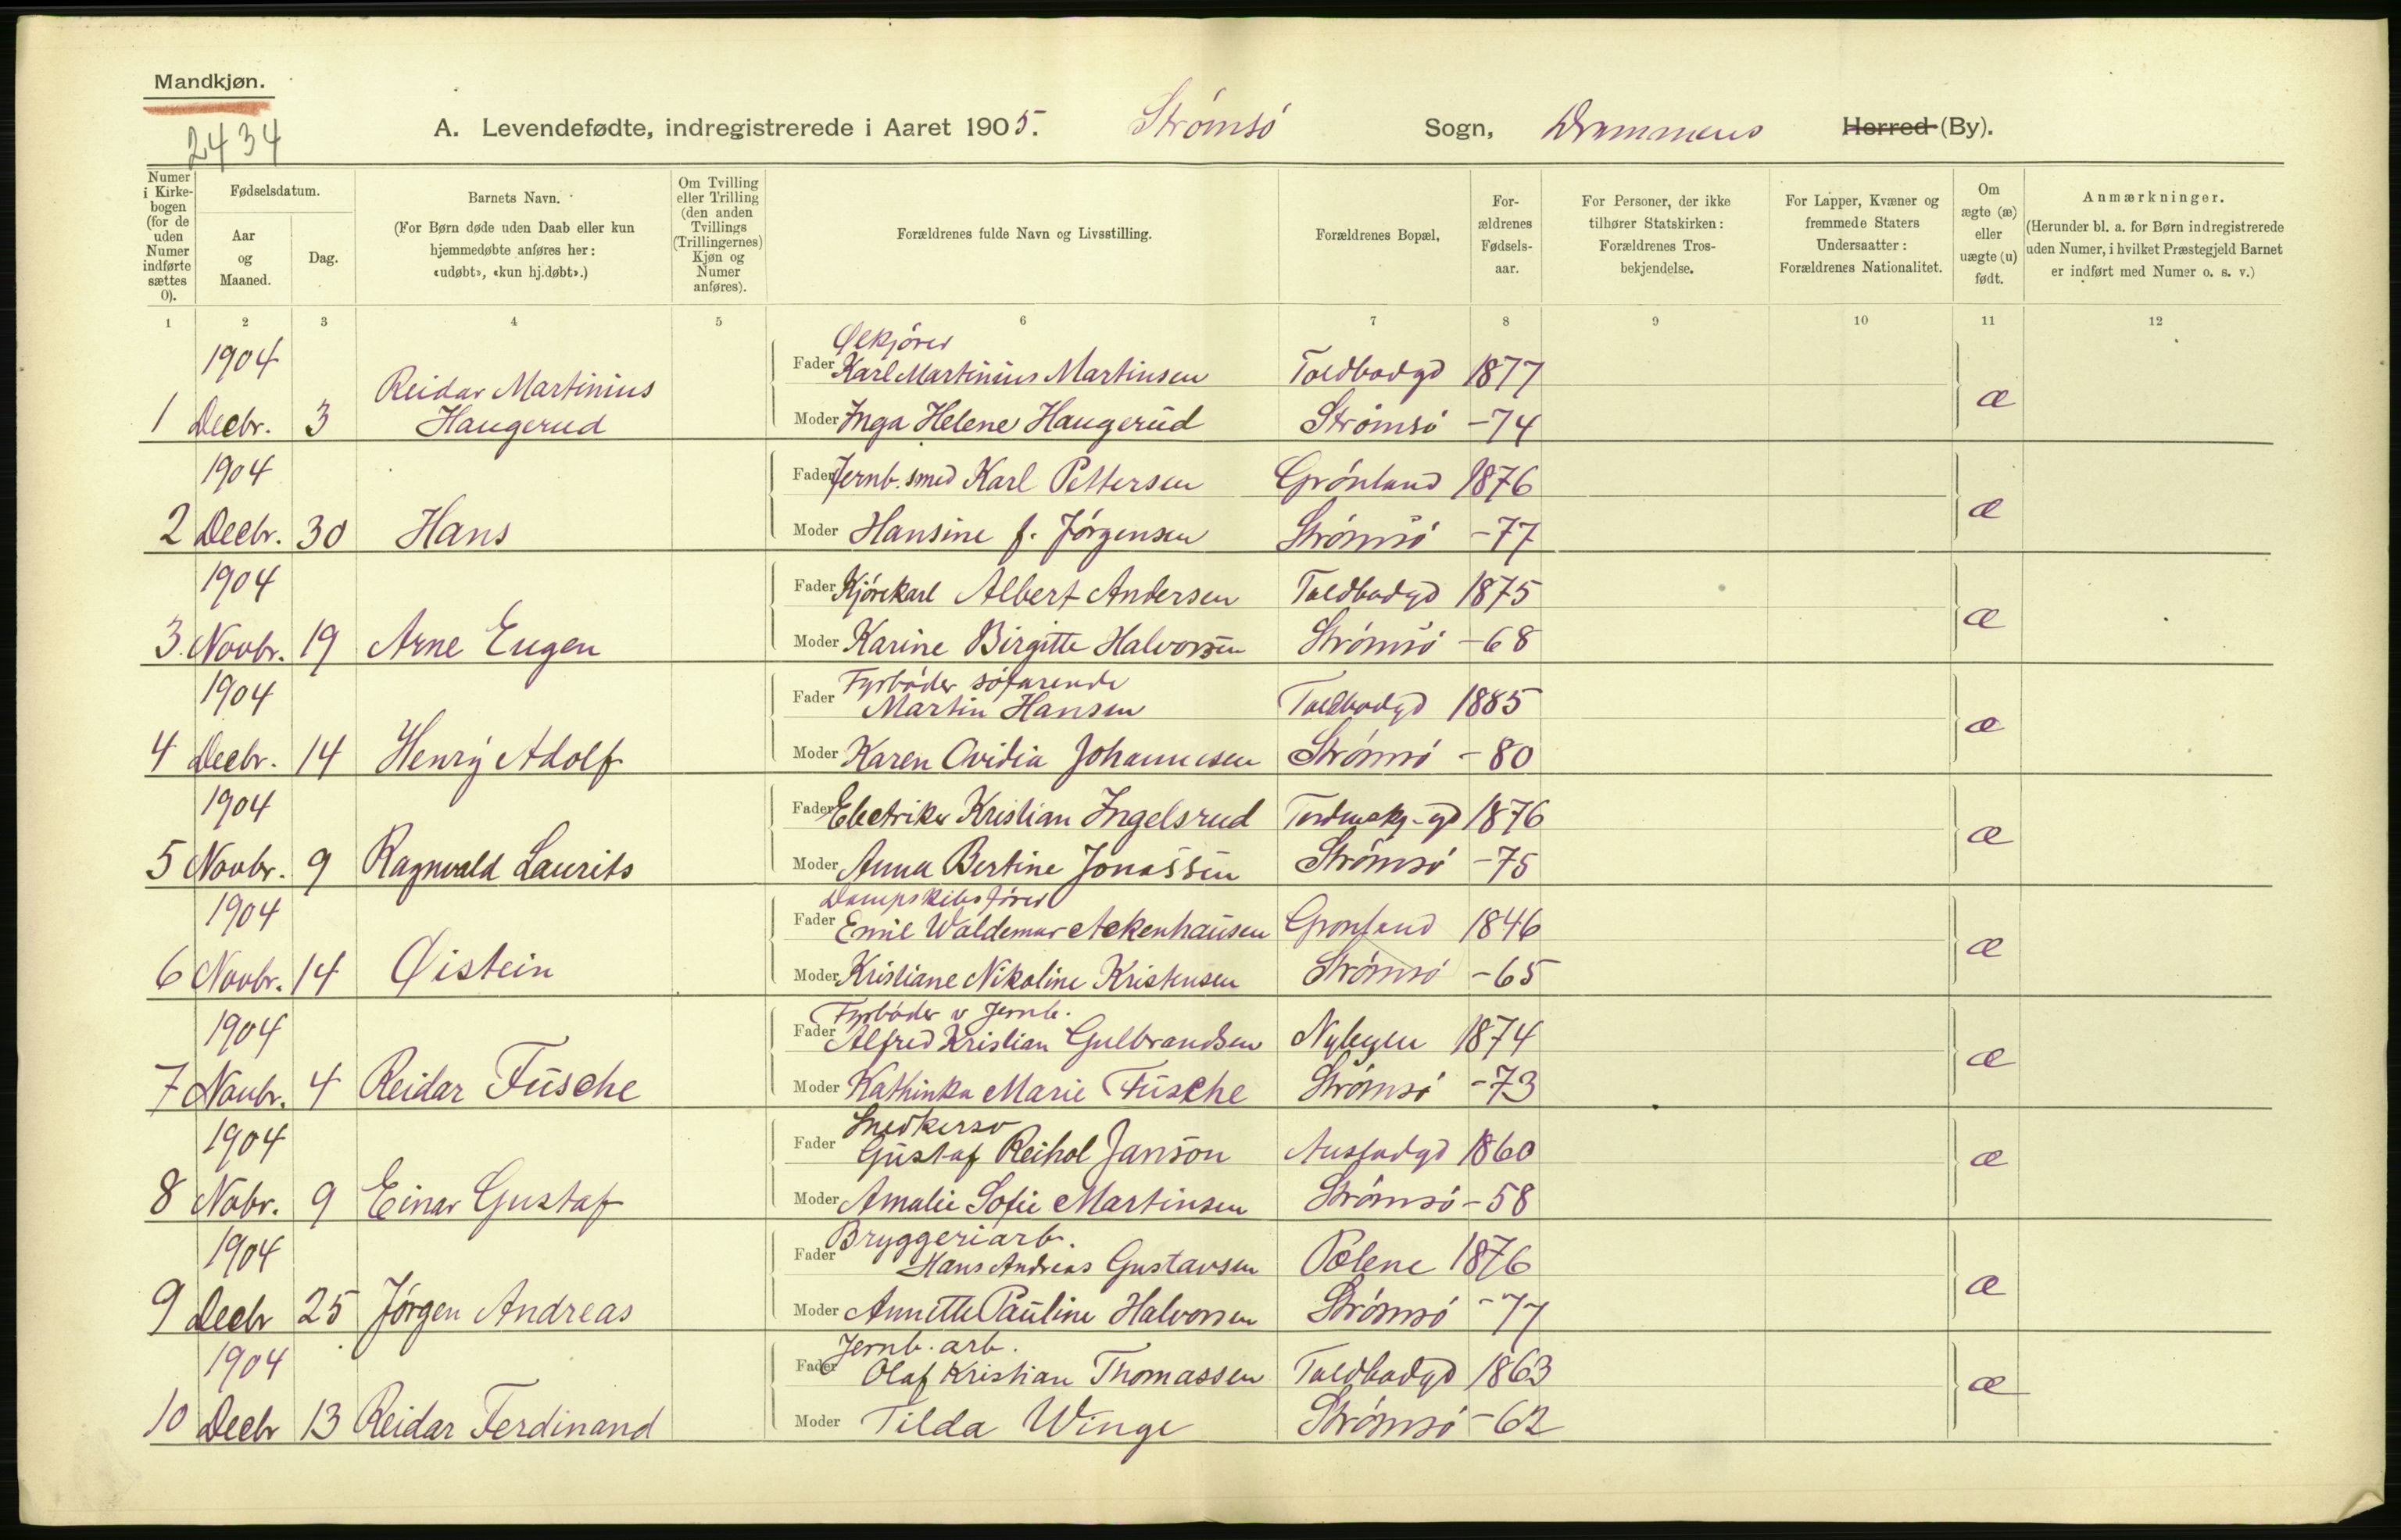 Mandkjøn.
2434
A. Levendefødte, indregistrerede i Aaret 1905. Strømsø Sogn, Drammens Herred (By).
Numer i Kirkebogen (for de uden Numer indførte sættes 0).
Fødselsdatum.
Aar og Maaned.
Dag.
Barnets Navn.
(For Børn døde uden Daab eller kun hjemmedøbte anføres her: «udøbt», «kun hj.døbt».)
Om Tvilling eller Trilling (den anden Tvillings (Trillingernes) Kjøn og Numer anføres).
Forældrenes fulde Navn og Livsstilling.
Forældrenes Bopæl,
Forældrenes Fødselsaar.
For Personer, der ikke tilhører Statskirken: Forældrenes Trosbekjendelse.
For Lapper, Kvæner og fremmede Staters Undersaatter: Forældrenes Nationalitet.
Om ægte (æ) eller uægte (u) født.
Anmærkninger.
(Herunder bl. a. for Børn indregistrerede uden Numer, i hvilket Præstegjeld Barnet er indført med Numer o. s. v.)
1 2 3 4 5 6 7 8 9 10 11 12
Ølkjører
1904 Reidar Martinius Fader Karl Martinius Martinsen Toldbodgd 1877
1 Decbr. 3 Haugerud Moder Inga Helene Haugerud Strømsø -74 æ
1904 Fader Jernb. smed Karl Pettersen Grønland 1876
2 Decbr. 30 Hans Moder Hansine f. Jørgensen Strømsø -77 æ
1904 Fader Kjørekarl Albert Andersen Toldbodgd 1875
3 Novbr. 19 Arne Eugen Moder Karine Birgitte Halvorsen Strømsø -68 æ
Fyrbøder søfarende
1904 Fader Martin Hansen Toldbodgd 1885
4 Decbr. 14 Henry Adolf Moder Karen Ovidia Johannesen Strømsø -80 æ
1904 Fader Electriker Kristian Ingelsrud 1876
5 Novbr. 9 Ragnvald Laurits Moder Anna Bertine Jonassen Strømsø -75 æ
Dampskibsfører
1904 Fader Emil Waldemar Ackenhausen Grønland 1846
6 Novbr. 14 Øistein Moder Kristiane Nikoline Kristensen Strømsø -65 æ
Fyrbøder v Jernb.
1904 Fader Alfred Kristian Gulbrandsen Nybyen 1874
7 Novbr. 4 Reidar Füsche Moder Kathinka Marie Füsche Strømsø -73 æ
Snedkersv
1904 Fader Gustaf Reihol Janson 1860
8 Nobr. 9 Einar Gustaf Moder Amalie Sofie Martinsen Strømsø -58 æ
Bryggeriarb.
1904 Fader Hans Andreas Gustavsen Polene 1876
9 Decbr 25 Jørgen Andreas Moder Annette Pauline Halvorsen Strømsø -77 æ
Jernb. arb.
1904 Fader Olaf Kristian Thomassen Toldbodgd 1863
10 Decbr 13 Reidar Ferdinand Moder Tilda Winge Strømsø -62 æ